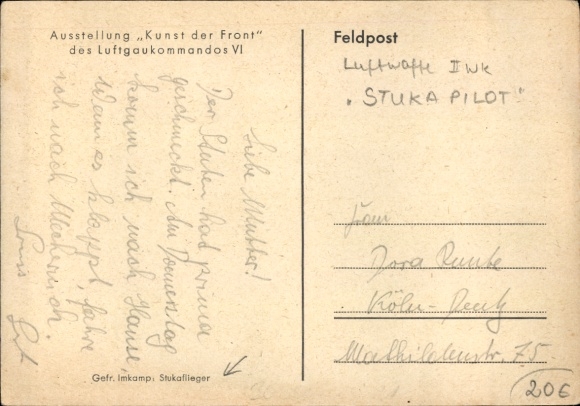 Ausstellung „Kunst der Front"
des Luftgaukommandos VI
Liebe Mutter!
Der Stuten hat prima
geschmeckt. Am Donnerstag
komm ich nach Hause,
Wenn es klappt, fahre
ich nach Mechernich.
Gefr. Imkamp: Stukaflieger
Feldpost
Luftwaffe II WK
„STUKA PILOT"
Frau
Dora
Köln-Deutz
Mathildenstr. 75
20€